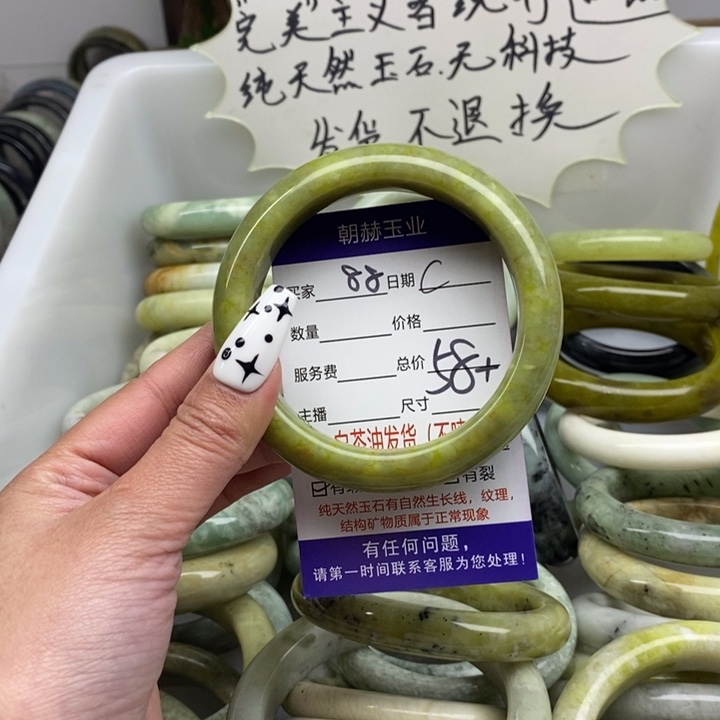 "完美"主义者
纯天然玉石.无科技
发货不退换
朝赫玉业
买家 88 日期 C
数量 价格
服务费 总价 585+
主播 尺寸
白茶油发货(不
有裂
纯天然玉石有自然生长线,纹理,
结构矿物质属于正常现象
有任何问题,
请第一时间联系客服为您处理!